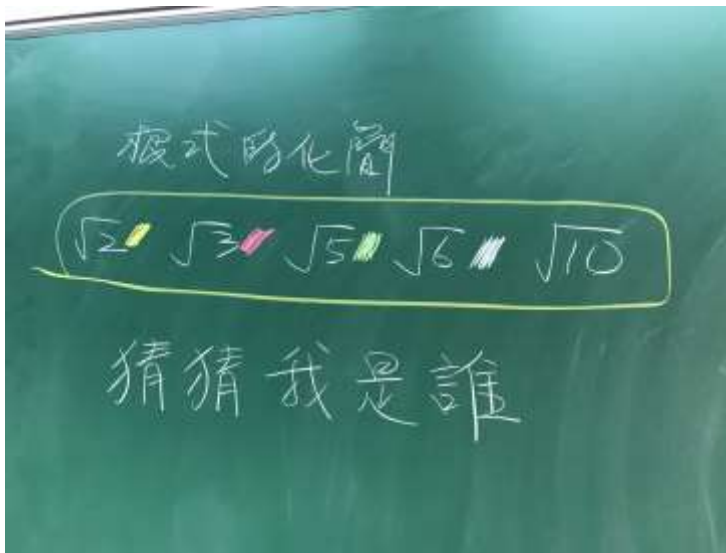 根式的化簡
√2 √3 √5 √6 √10
猜猜我是誰